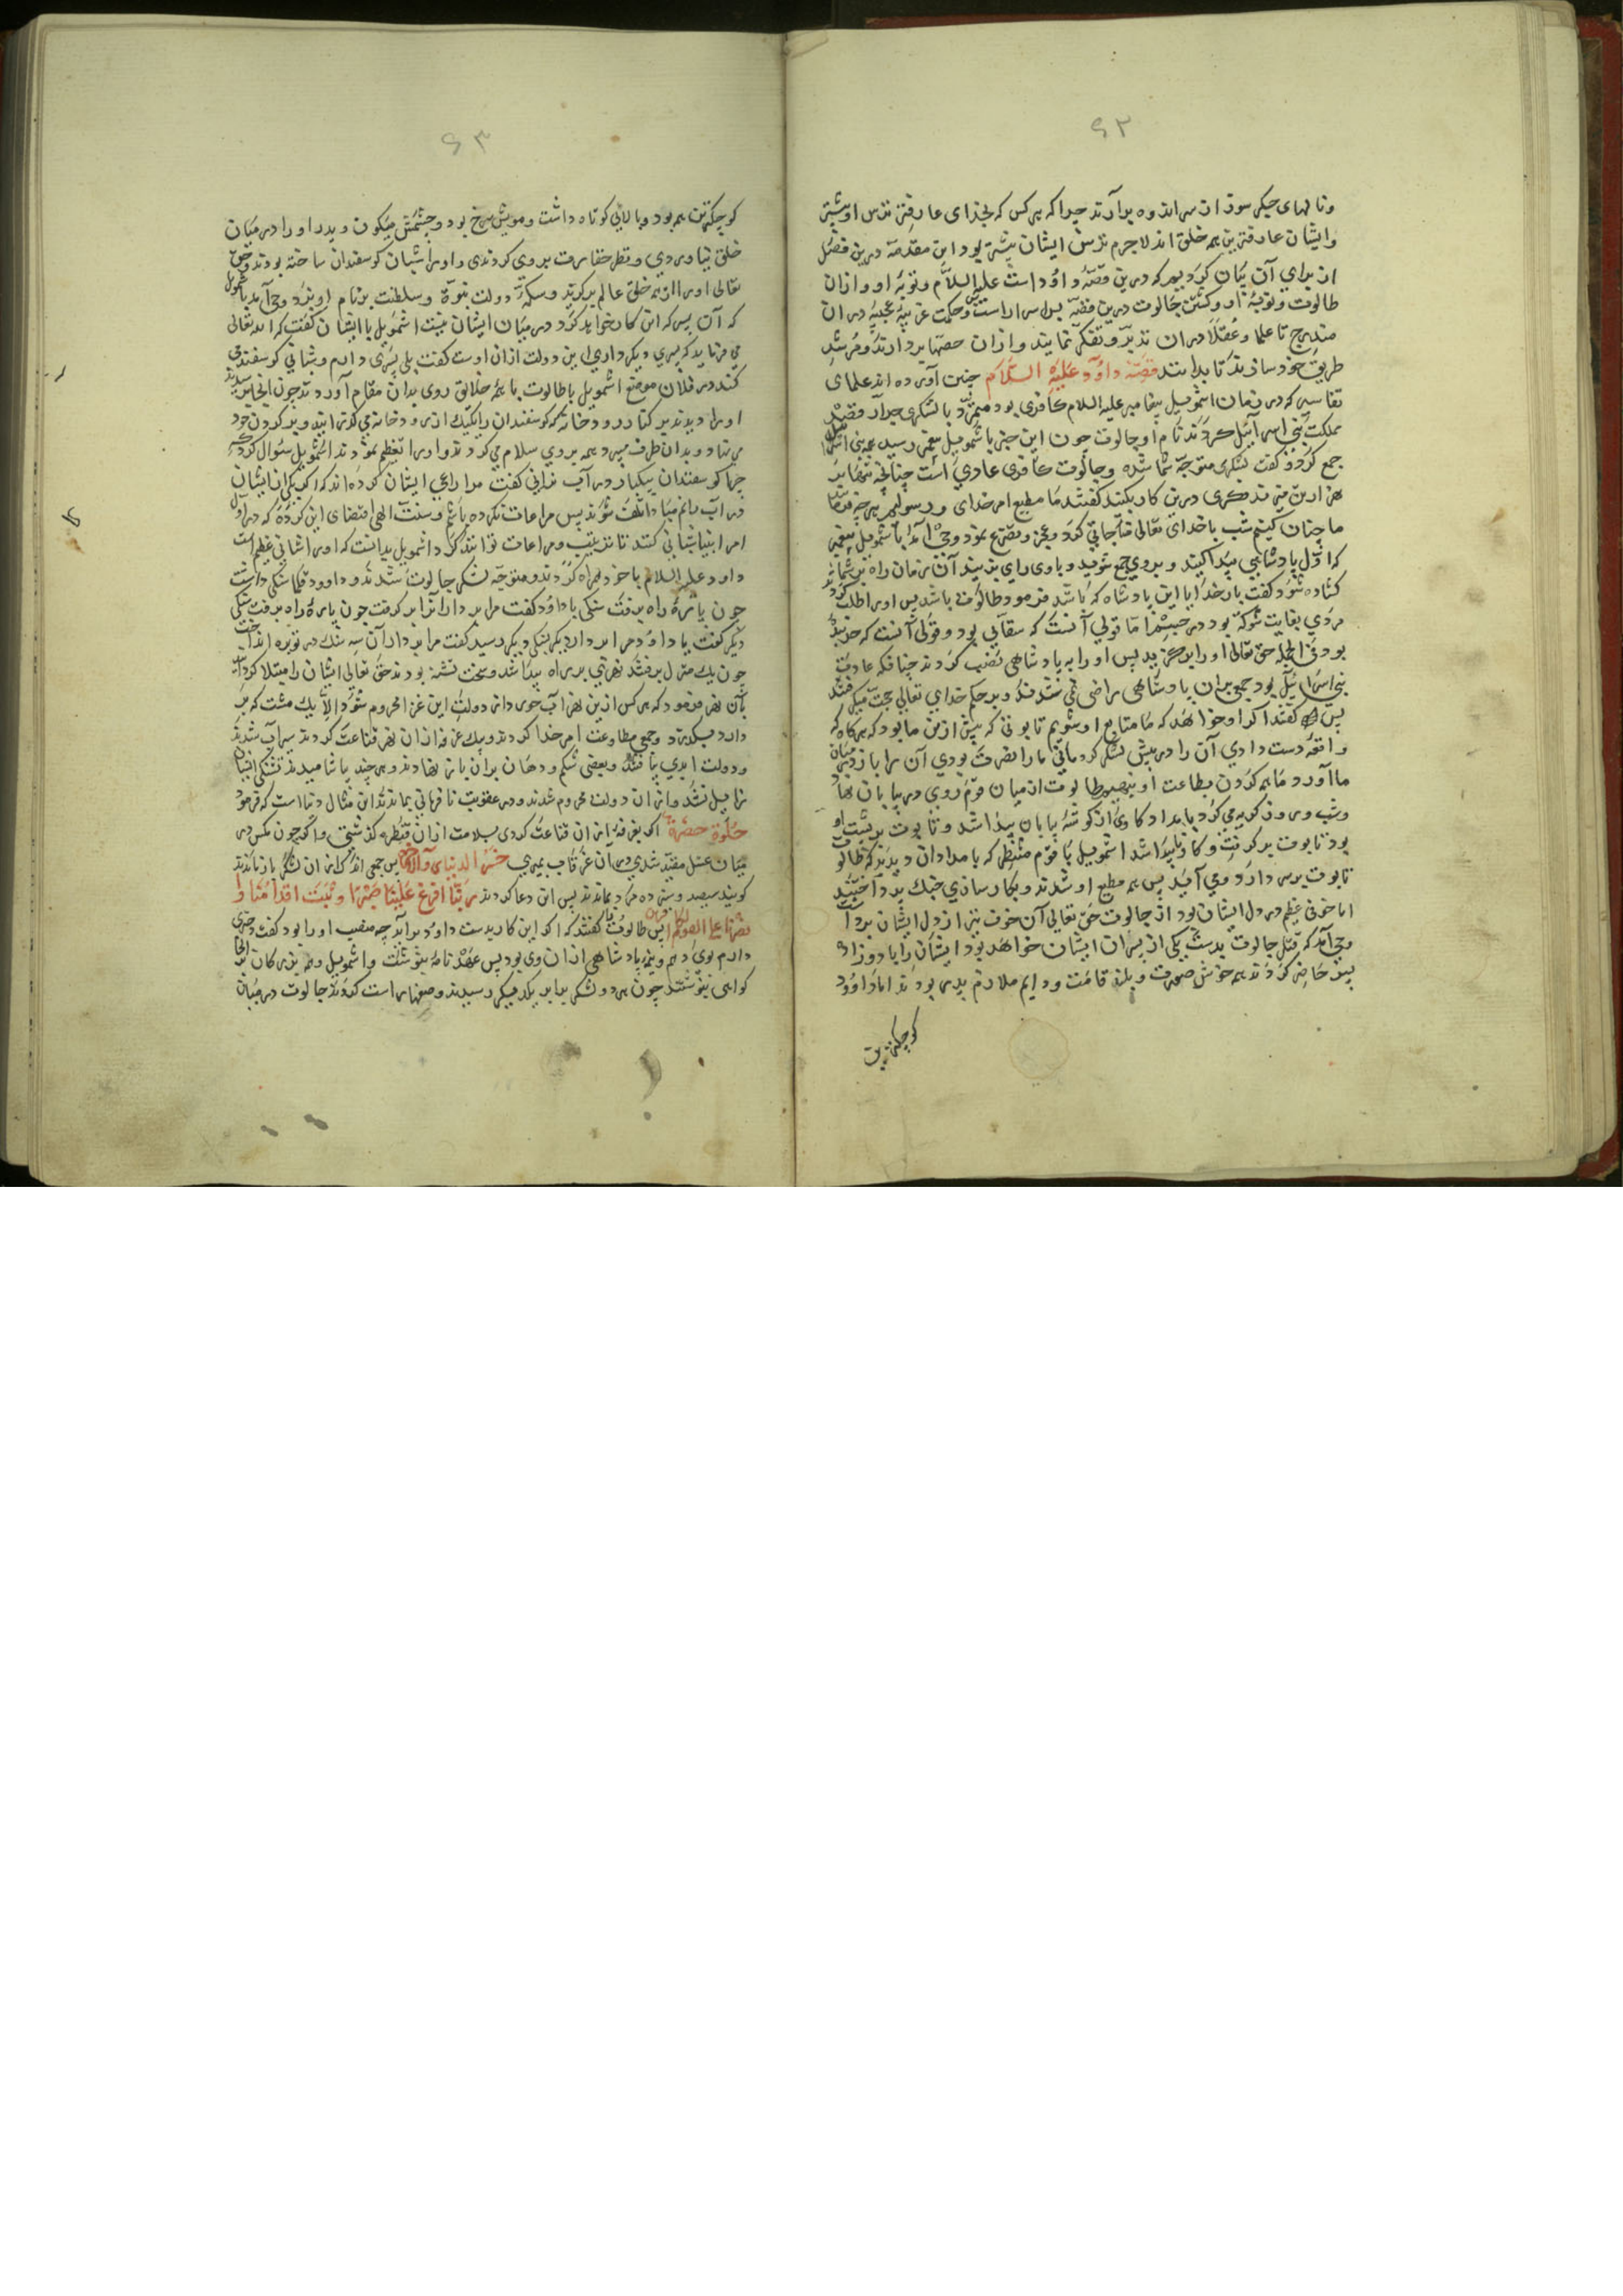 ۶۲
ونالهای جیکر سوز از سر اندوه برآرند چرا که هر کس که بخدای عارفتر ترس او بیشتر
وایشان عارفترین همه خلق اند لاجرم ترس ایشان بیشتر بود این مقدمه درین فصل
از برای آن بیان کرد یم که درین قصهٔ داود است علیه السلام وتوبهٔ او وازان
طالوت وتوبهٔ او وکشتن جالوت درین قصه بس اسرار است وحکمت غریبه عجیبه دران
مندرج تا علما وعقلا دران تدبر وتفکر نمایند وازان حصها بردارند ومرشد
طریق خود سازند تا بدانند قصهٔ داود علیه السلام چنین آورده اند علمای
تفاسیر که در زمان اشمویل پیغامبر علیه السلام کافری بود متمرد با لشکری جرار قصد
مملکت بنی اسرائیل کردند نام او جالوت چون این خبر باشمویل پیغمبر رسید همه بنی اسرائیل
جمع کرد وگفت لشکری متوجه شما شده وجالوت کافری عادی است چنانچه
هزار تن تدبیری درین کار بکنید گفتند ما مطیع امر خدای ورسولیم هر چه فرماید
ما چنان کنیم شب با خدای تعالی مناجاتی کرد وعجز وتضرع نمود وحی آمد باشمویل پیغمبر
که اول پادشاهی پیدا کنید وبروی جمع شوید وباوی رای بزنید آن زمان راه بر شما
کشاده شود گفت بار خدایا این پادشاه که باشد فرمود طالوت باشد پس او را طلب کردند
مردی بغایت شوکة بود در خیشم اما قولی آنست که سقایی بود وقولی آنست که خربنده
بود فی الجمله حق تعالی او را برگزید پس او را به پادشاهی نصب کردند چنانکه عادت
بنی اسرائیل بود جمعی بران پادشاهی راضی نمی شدند وبر حکم خدای تعالی حجت میگرفتند
پس گفتند اگر او خواهد که ما متابع او شویم تابوتی که پیش ازین ما بود که هرگاه که
واقعه دست دادی آن را در پیش لشکر کردمانی ما را نصرت بودی آن را باز در میان
ما آورد ما همه گردن بطاعت او بنهیم طالوت از میان قوم روی در بیابان نهاد
وشب وروز گریه می کرد بامداد کاوی از گوشهٔ بیابان پیدا شد وتابوت بر پشت او
بود تابوت برگرفت وکاو ناپیدا شد اشمویل با قوم منتظر که بامدادان دیدند که طالوت
تابوت بر سر دارد ومی آید پس همه مطیع او شدند وبکار سازی جنک پرداختند
اما خوفی عظیم در دل ایشان بود از جالوت حق تعالی آن خوف نیز از دل ایشان برداشت
وحی آمد که قتل جالوت بدست یکی از پسران ایشان خواهد بود ایشان را با دوازده
پسر حاضر کردند همه خوش صورت وبلند قامت ودایم ملازم پدر بودند اما داود
کوچکترین
۶۳
کوچکترین همه بود وبالایی کوتاه داشت ومویش سرخ بود وچشمش میکون وپدر او را در میان
خلق نیاوردی ونظر حقارت بروی کردندی واو را شبان کوسفندان ساخته بودند وحق
تعالی او را از همه خلق عالم برگزید وسکهٔ دولت نبوة وسلطنت بر نام او بزد وحی آمد باشمویل
که آن پسر که این کار خواهد کرد در میان ایشان نیست اشمویل با ایشان گفت که الله تعالی
می فرماید که پسری دیگر داری این دولت ازان اوست گفت بلی پسری دارم وشبانی کوسفند می
کند در فلان موضع اشمویل با طالوت با همه خلایق روی بدان مقام آوردند چون انجا رسیدند
او را دیدند بر کنار رودخانه که کوسفندان را یکیک از رودخانه می گذرانید وبر گردن خود
می نهاد وبدان طرف میبرد همه بروی سلام می کردند واو را تعظیم نمودند اشمویل سؤال کرد که
چرا کوسفندان بیکبار در آب نرانی گفت مرا راعی ایشان کرده اند که اگر یکی از ایشان
در آب مانم مبادا تلف شوند پس مراعات نکرده باشم وسنت الهی اقتضای این کرده که در اول
امر انبیا شبانی کنند تا ترتیب ومراعات توانند کرد اشمویل بدانست که او را شانی عظیم است
داود علیه السلام با خود همراه کردند ومتوجه لشکر جالوت شدند وداود فلاسنگی داشت
چون پارهٔ راه برفت سنگی با داود گفت مرا بردار آنرا برگرفت چون پارهٔ راه برفت سنگی
دیگر گفت یا داود مرا بردار دیگر بسنگی دیگر رسید گفت مرا بردار آن سه سنک در توبره انداخت
چون یک منزل برفتند نهری بر راه پیدا شد وسخت تشنه بودند حق تعالی ایشان را مبتلا کرد
بآن نهر فرمود که هر کس ازین نهر آب خورد از دولت این غزا محروم شود الا یک مشت که بر
دارد میکردد وجمعی مطاوعت امر خدا کردند وبیک غرفه ازان نهر قناعت کردند سیراب شدند
ودولت ابدی یافتند وبعضی شکم ودهان بران باز نهادند وهر چند یاشامیدند تشنکی ایشان
زایل نشد وازان دولت محروم شدند ودر عقوبت نافرمانی بماندند این مثال دنیا است که فرمود
حلوة خضرة اگر بغرفهٔ ازان قناعت کردی بسلامت ازان قنطره گذشتی واگر چون مکس در
میان عسل مقید شدی در آن غرقاب بمیری خسر الدنیا والآخرة پس جمعی اندک ازان لشکر باز ماندند
کویند سیصد وسیزده مرد بماندند پس این دعا کردند ربنا افرغ علینا صبرا وثبت اقدامنا و
انصرنا علی القوم الکافرین پس طالوت را گفتند که اگر این کار بدست داود برآید چه منصب او را بود گفت دختری
دارم بوی دهم ونیمهٔ پادشاهی ازان وی بود پس عهد نامهٔ بنوشت واشمویل وهمه بزرگان انجا
گواهی بنوشتند چون هر دو لشکر برابر یکدیگر رسیدند وصفها راست کردند جالوت در میان